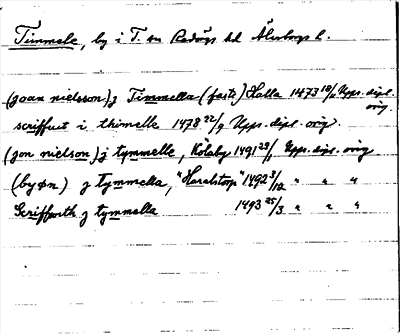 Timmele, by i T. sn Redvägs hd Älvsborgs l.
(joan nielsson) j Timmella (fastr) Halla 1473 18/11 Upps. dipl. orig.
scriffuet i thimelle 1478 22/9 Upps. dipl. orig.
(jon nielson) j tymmelle, Kölaby 1491 23/1 Upps. dipl. orig
(byøn) j tymmella, "Haralstorp" 1492 3/12 " " "
Scriffweth j tymmella 1493 25/3 " " "